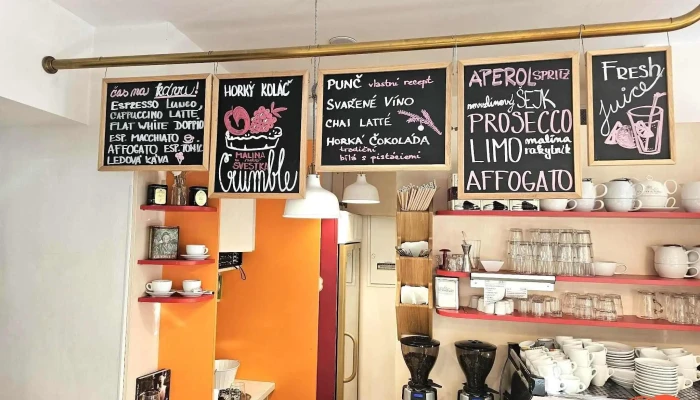 čas na kávu!
Espresso Lungo,
Cappuccino Latte,
Flat White Doppio
Esp. Macchiato
Affogato Esp. Tonic
Ledová káva
Horký koláč
Malina
švestka
Crumble
Punč vlastní recept
Svařené víno
Chai latté
Horká čokoláda
tradiční
bílá s pistáciemi
Aperol Spritz
Šejk
Prosecco
Limo malina
rakytník
Affogato
Fresh
juice